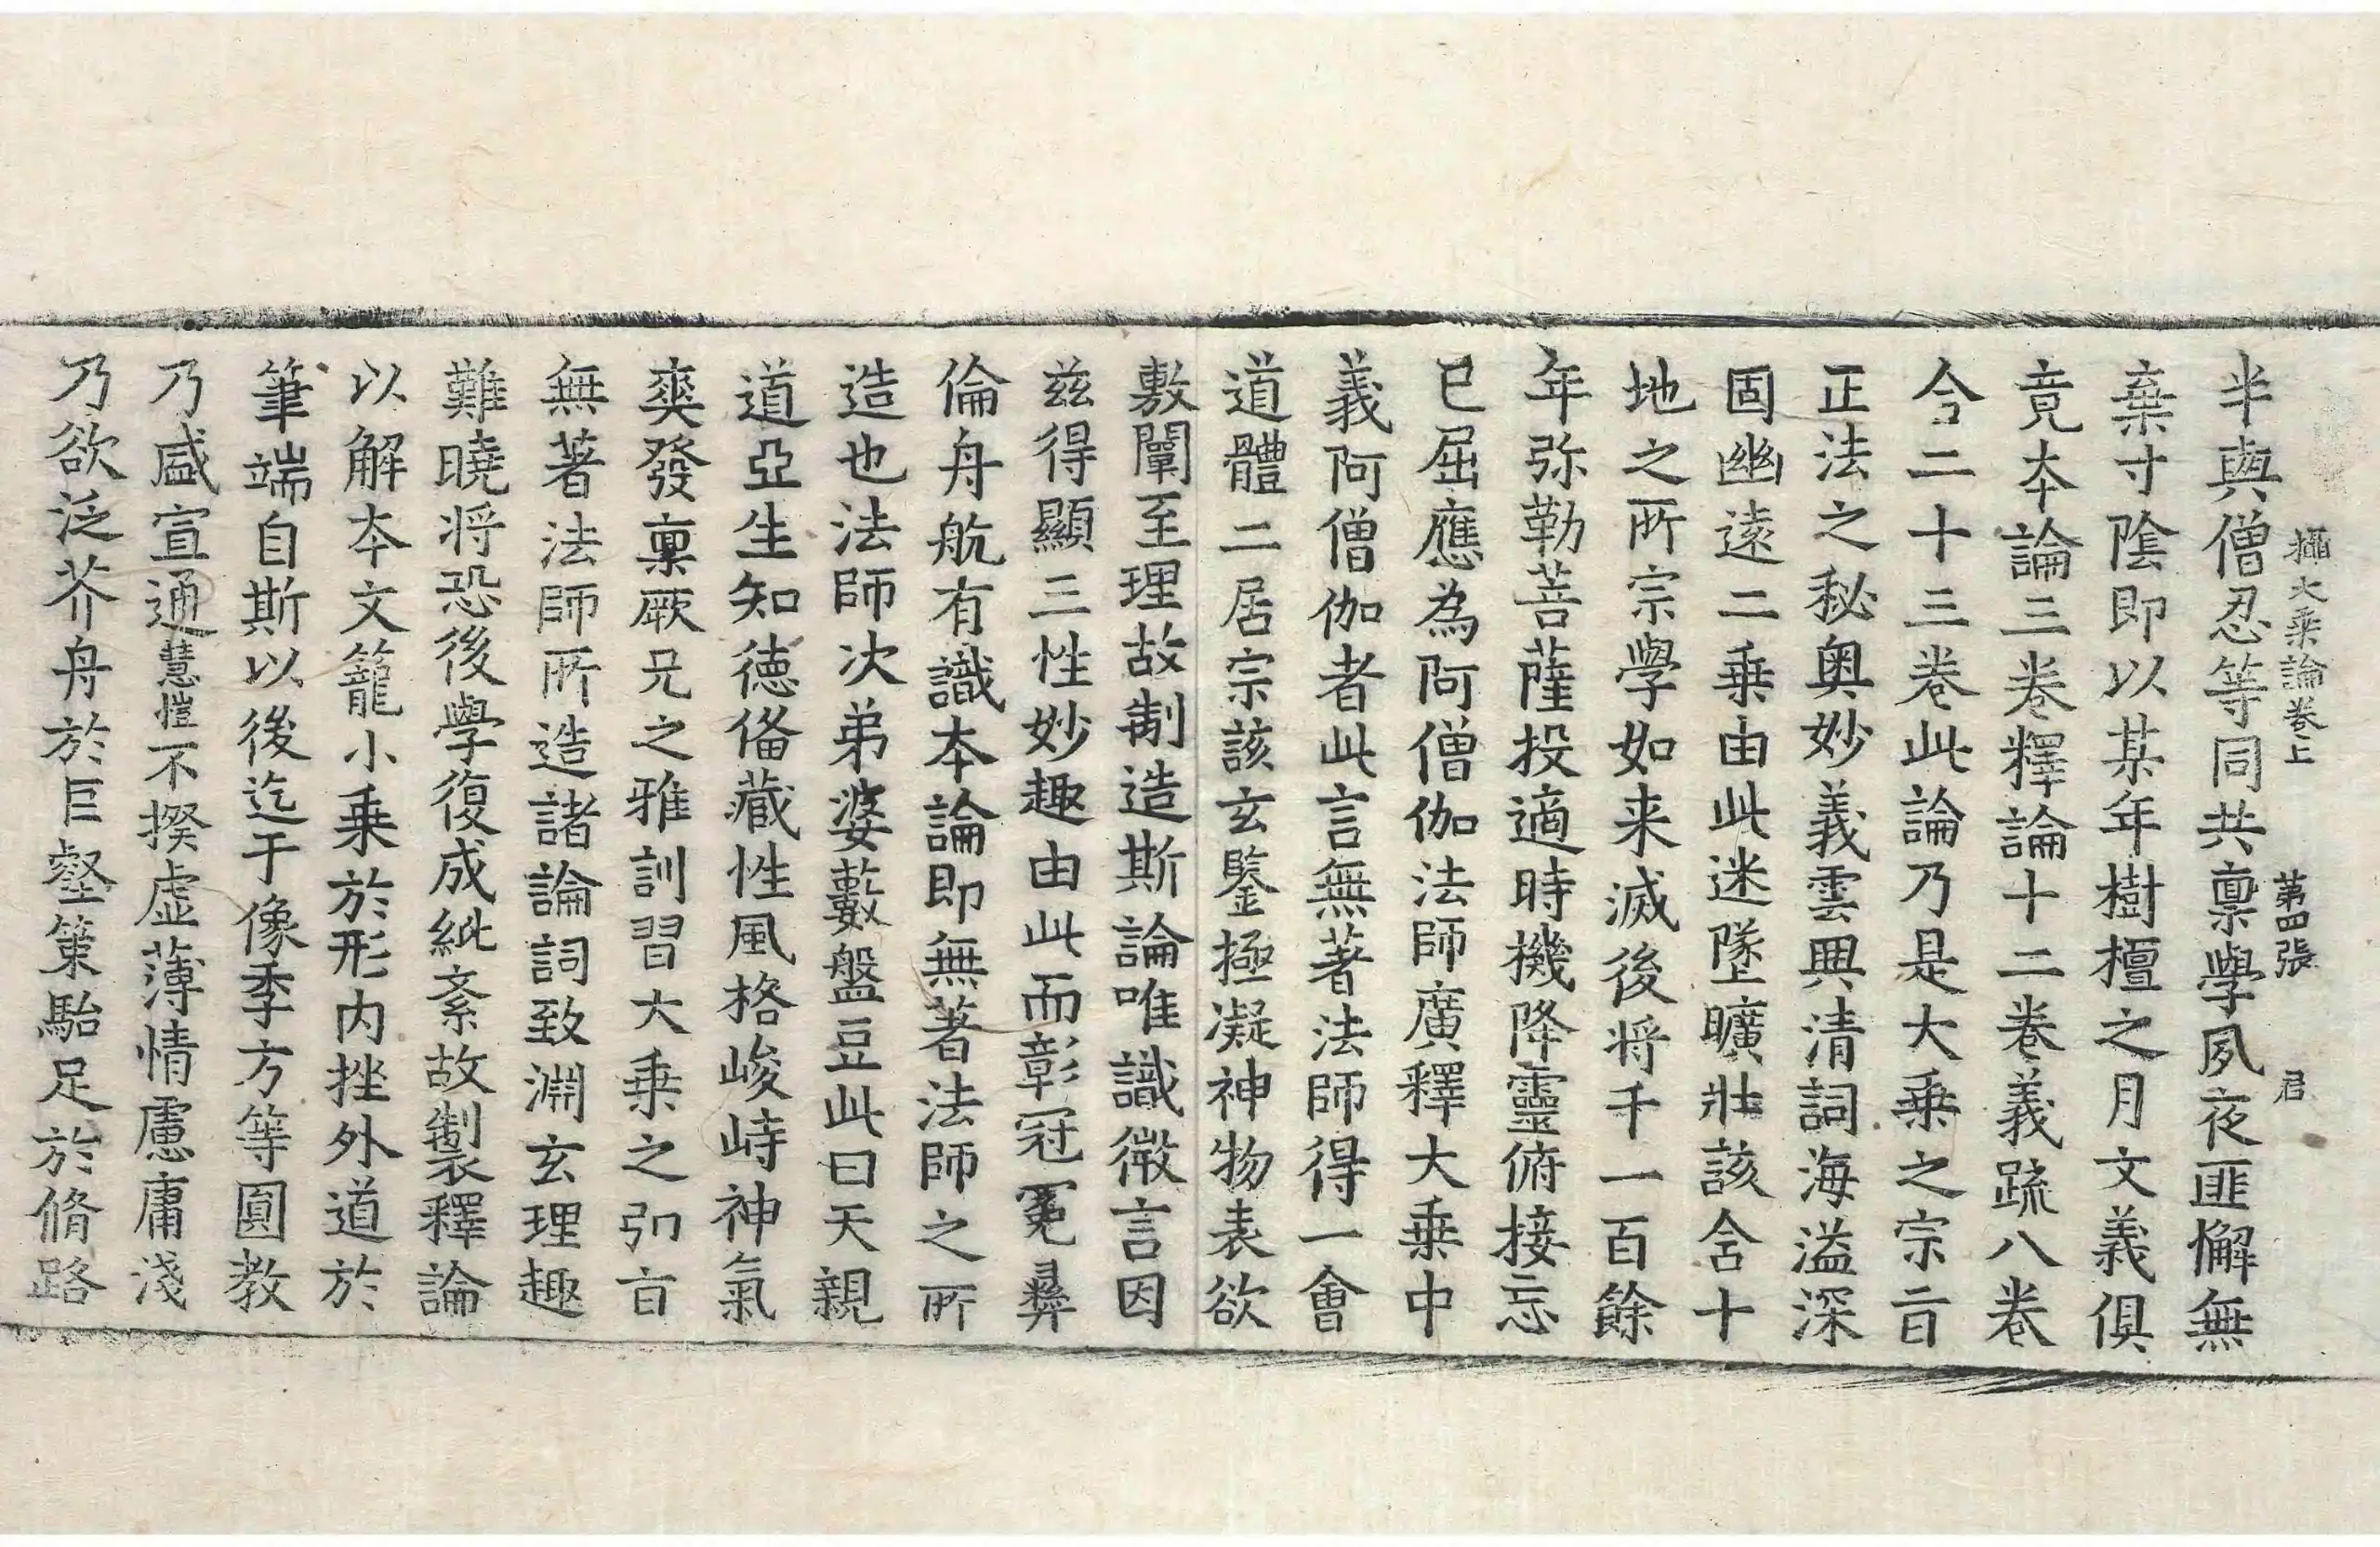 攝大乘論卷上　第四張　君
半與僧忍等同共禀學夙夜匪懈無
棄寸陰即以某年樹檀之月文義俱
竟夲論三卷釋論十二卷義䟽八卷
合二十三卷此論乃是大乗之宗旨
正法之秘奥妙義雲興清詞海溢深
固幽遠二乗由此迷墜曠壯該含十
地之所宗學如来滅後将千一百餘
年弥勒菩薩投適時機降靈俯接忘
已屈應為阿僧伽法師廣釋大乗中
義阿僧伽者此言無著法師得一會
道體二居宗該玄鑒極凝神物表欲
敷闡至理故制造斯論唯識微言因
兹得顯三性妙趣由此而彰冠冕彛
倫舟航有識夲論即無著法師之所
造也法師次弟婆藪盤豆此曰天親
道亞生知德俻藏性風格峻峙神氣
爽發禀厥兄之雅訓習大乗之弘旨
無著法師所造諸論詞致淵玄理趣
難曉将恐後學復成紕紊故製釋論
以解夲文籠小乗於形内挫外道於
筆端自斯以後迄于像季方等圓教
乃盛宣通慧愷不揆虚薄情慮庸淺
乃欲泛芥舟於巨壑策駘足於脩路